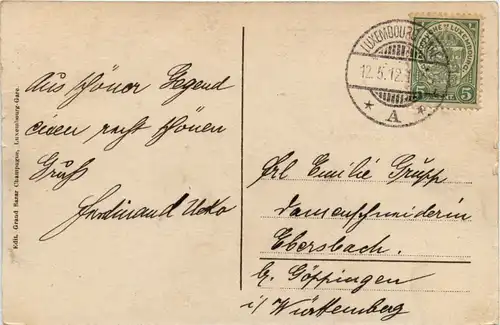 Aus schöner Gegend
einen recht schönen
Gruß
Ferdinand
Frl Emilie Grupp
Damenschneiderin
Ebersbach.
b. Göppingen
i/Württemberg
Edit. Grand Bazar Champagne, Luxembourg-Gare.
LUXEMBOURG
12.5.12.
A
5 5